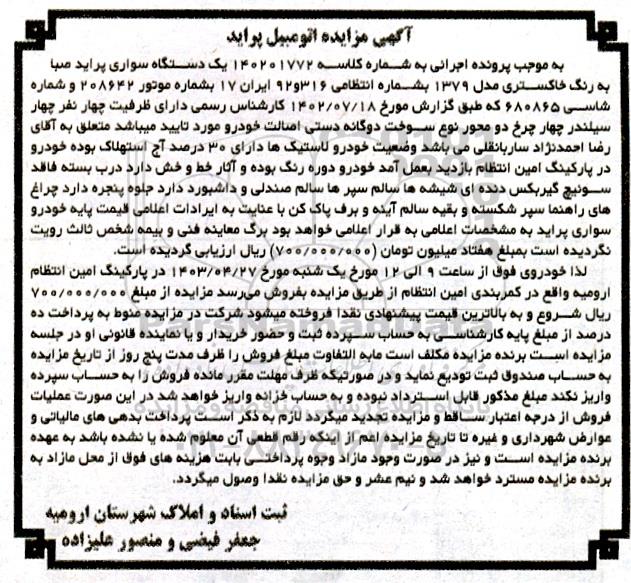 آگهی مزایده اتومبیل پراید
به موجب پرونده اجرائی به شماره کلاسه ۱۴۰۲۰۱۷۷۲ یک دستگاه سواری پراید صبا
به رنگ خاکستری مدل ۱۳۷۹ بشماره انتظامی ۳۱۶و۹۲ ایران ۱۷ بشماره موتور ۲۰۸۶۴۲ و شماره
شاسی ۶۸۰۸۶۵ که طبق گزارش مورخ ۱۴۰۲/۰۷/۱۸ کارشناس رسمی دارای ظرفیت چهار نفر چهار
سیلندر چهار چرخ دو محور نوع سوخت دوگانه دستی اصالت خودرو مورد تایید میباشد متعلق به آقای
رضا احمدنژاد ساربانقلی می باشد وضعیت خودرو لاستیک ها دارای ۳۰ درصد آج استهلاک بوده خودرو
در پارکینگ امین انتظام بازدید بعمل آمد خودرو دوره رنگ بوده و آثار خط و خش دارد درب بسته فاقد
سوئیچ گیربکس دنده ای شیشه ها سالم سپر ها سالم صندلی و داشبورد دارد جلوه پنجره دارد چراغ
های راهنما سپر شکسته و بقیه سالم آینه و برف پاک کن با عنایت به ایرادات اعلامی قیمت پایه خودرو
سواری پراید به مشخصات اعلامی به قرار اعلامی خواهد بود برگ معاینه فنی و بیمه شخص ثالث رویت
نگردیده است بمبلغ هفتاد میلیون تومان (۷۰۰/۰۰۰/۰۰۰) ریال ارزیابی گردیده است.
لذا خودروی فوق از ساعت ۹ الی ۱۲ مورخ یک شنبه مورخ ۱۴۰۳/۰۴/۲۷ در پارکینگ امین انتظام
ارومیه واقع در کمربندی امین انتظام از طریق مزایده بفروش می‌رسد مزایده از مبلغ ۷۰۰/۰۰۰/۰۰۰
ریال شروع و به بالاترین قیمت پیشنهادی نقدا فروخته میشود شرکت در مزایده منوط به پرداخت ده
درصد از مبلغ پایه کارشناسی به حساب سپرده ثبت و حضور خریدار و یا نماینده قانونی او در جلسه
مزایده است برنده مزایده مکلف است مابه التفاوت مبلغ فروش را ظرف مدت پنج روز از تاریخ مزایده
به حساب صندوق ثبت تودیع نماید و در صورتیکه ظرف مهلت مقرر مانده فروش را به حساب سپرده
واریز نکند مبلغ مذکور قابل استرداد نبوده و به حساب خزانه واریز خواهد شد در این صورت عملیات
فروش از درجه اعتبار ساقط و مزایده تجدید میگردد لازم به ذکر است پرداخت بدهی های مالیاتی و
عوارض شهرداری و غیره تا تاریخ مزایده اعم از اینکه رقم قطعی آن معلوم شده یا نشده باشد به عهده
برنده مزایده است و نیز در صورت وجود مازاد وجوه پرداختی بابت هزینه های فوق از محل مازاد به
برنده مزایده مسترد خواهد شد و نیم عشر و حق مزایده نقدا وصول میگردد.
ثبت اسناد و املاک شهرستان ارومیه
جعفر فیضی و منصور علیزاده